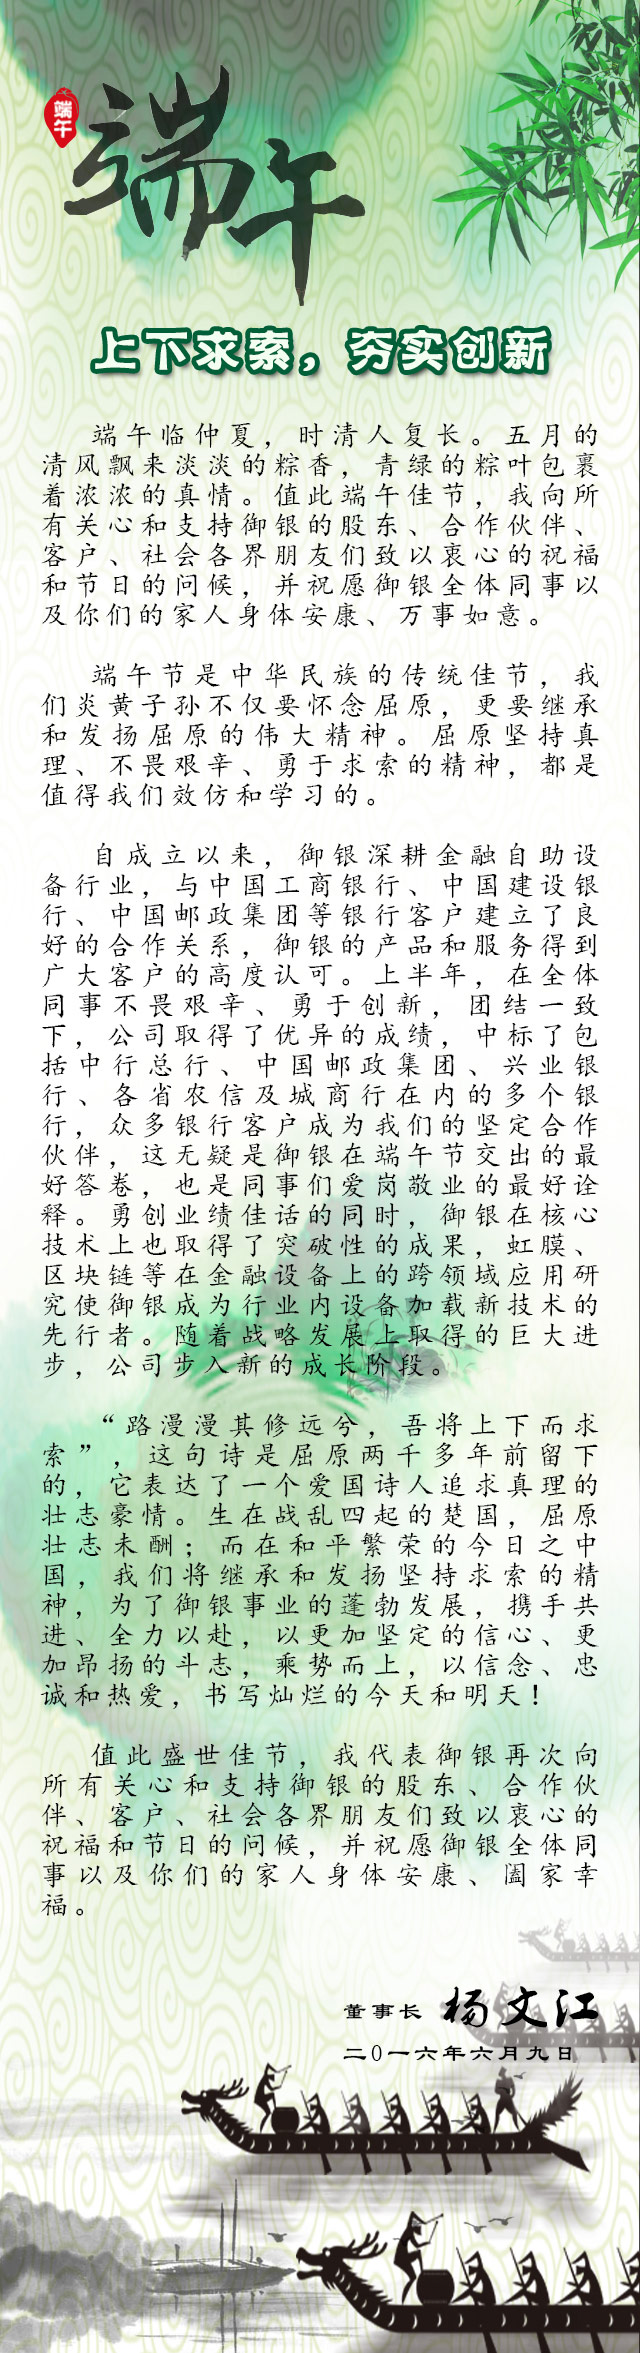 端午
端午
上下求索，夯实创新
端午临仲夏，时清人复长。五月的
清风飘来淡淡的粽香，青绿的粽叶包裹
着浓浓的真情。值此端午佳节，我向所
有关心和支持御银的股东、合作伙伴、
客户、社会各界朋友们致以衷心的祝福
和节日的问候，并祝愿御银全体同事以
及你们的家人身体安康、万事如意。
端午节是中华民族的传统佳节，我
们炎黄子孙不仅要怀念屈原，更要继承
和发扬屈原的伟大精神。屈原坚持真
理、不畏艰辛、勇于求索的精神，都是
值得我们效仿和学习的。
自成立以来，御银深耕金融自助设
备行业，与中国工商银行、中国建设银
行、中国邮政集团等银行客户建立了良
好的合作关系，御银的产品和服务得到
广大客户的高度认可。上半年，在全体
同事不畏艰辛、勇于创新，团结一致
下，公司取得了优异的成绩，中标了包
括中行总行、中国邮政集团、兴业银
行、各省农信及城商行在内的多个银
行，众多银行客户成为我们的坚定合作
伙伴，这无疑是御银在端午节交出的最
好答卷，也是同事们爱岗敬业的最好诠
释。勇创业绩佳话的同时，御银在核心
技术上也取得了突破性的成果，虹膜、
区块链等在金融设备上的跨领域应用研
究使御银成为行业内设备加载新技术的
先行者。随着战略发展上取得的巨大进
步，公司步入新的成长阶段。
“路漫漫其修远兮，吾将上下而求
索”，这句诗是屈原两千多年前留下
的，它表达了一个爱国诗人追求真理的
壮志豪情。生在战乱四起的楚国，屈原
壮志未酬；而在和平繁荣的今日之中
国，我们将继承和发扬坚持求索的精
神，为了御银事业的蓬勃发展，携手共
进、全力以赴，以更加坚定的信心、更
加昂扬的斗志，乘势而上，以信念、忠
诚和热爱，书写灿烂的今天和明天！
值此盛世佳节，我代表御银再次向
所有关心和支持御银的股东、合作伙
伴、客户、社会各界朋友们致以衷心的
祝福和节日的问候，并祝愿御银全体同
事以及你们的家人身体安康、阖家幸
福。
董事长 杨文江
二〇一六年六月九日